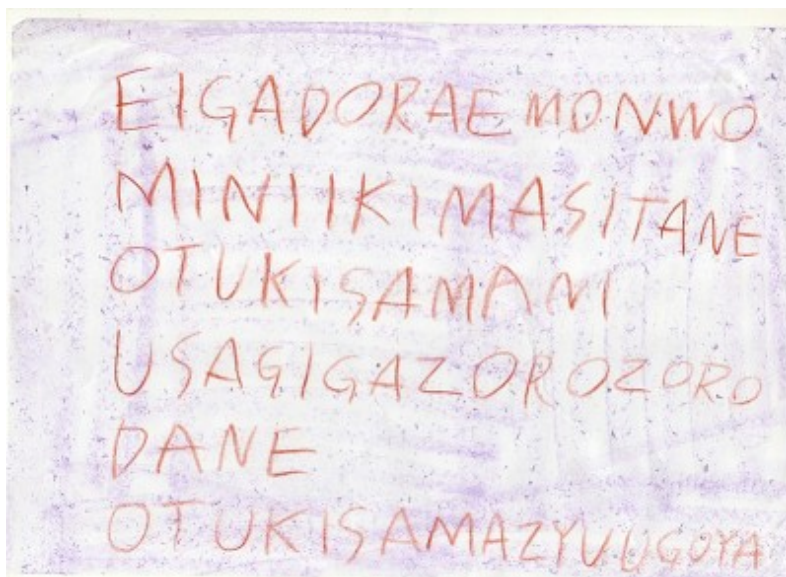 EIGADORAEMONWO
MINIIKIMASITANE
OTUKISAMANI
USAGIGAZOROZORO
DANE
OTUKISAMAZYUUGOYA